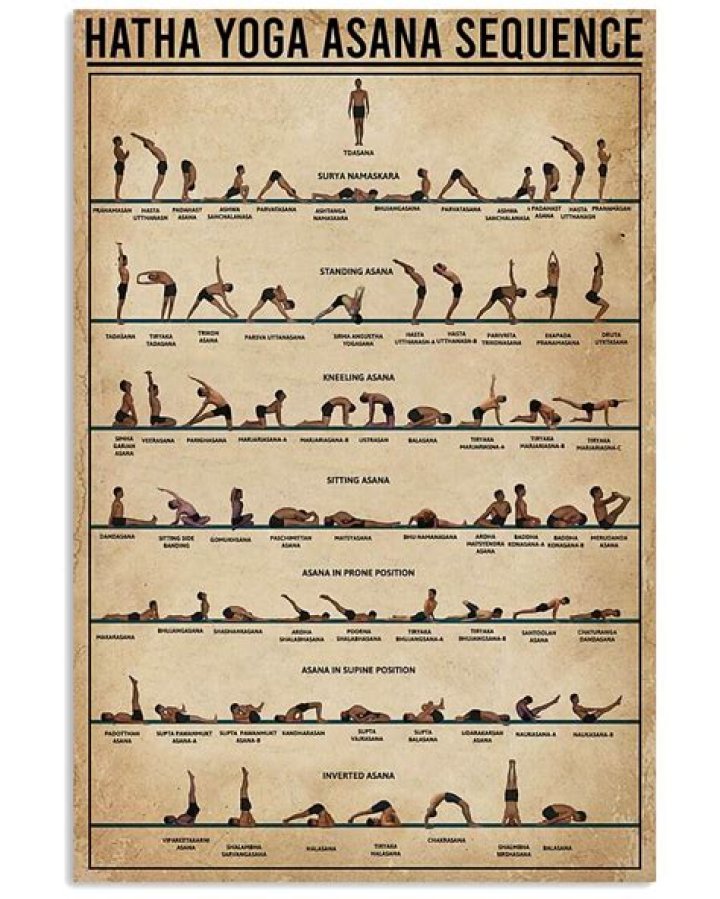 HATHA YOGA ASANA SEQUENCE
TDASANA
SURYA NAMASKARA
PRANAMASAN HASTA UTTHANASN PADAHAST ASANA ASHWA SANCHALANASA PARVATASANA ASHTANGA NAMASKARA BHUJANGASANA PARVATASANA ASHWA SANCHALANASA PADAHAST ASANA HASTA UTTHANASN PRANAMASAN
STANDING ASANA
TADASANA TIRYAKA TADASANA TRIKON ASANA PARSVA UTTANASANA SIRHA ANGUSTHA YOGASANA HASTA UTTHANASN-A HASTA UTTHANASN-B PARIVRITA TRIKONASANA EKAPADA PRANAMASANA DRUTA UTKTASANA
KNEELING ASANA
SIMHA GARJAN ASANA VEERASANA PARIGHASANA MARJARIASANA-A MARJARIASANA-B USTRASAN BALASANA TIRYAKA MARJARIASNA-A TIRYAKA MARJARIASNA-B TIRYAKA MARJARIASNA-C
SITTING ASANA
DANDASANA SITTING SIDE BANDING GOMUKHSANA PASCHIMITTAN ASANA MATSYASANA BHU NAMANASANA ARDHA MATSYENDRA ASANA BADDHA KONASANA-A BADDHA KONASANA-B MERUDANDA ASANA
ASANA IN PRONE POSITION
MAKARASANA BHUJANGASANA SHASHANKASANA ARDHA SHALABHASANA POORNA SHALABHASANA TIRYAKA BHUJANGASANA-A TIRYAKA BHUJANGASANA-B SANTOOLAN ASANA CHATURANGA DANDASANA
ASANA IN SUPINE POSITION
PADOTTHAN ASANA SUPTA PAWANMUKT ASANA-A SUPTA PAWANMUKT ASANA-B KANDHARASAN SUPTA VAJRASANA SUPTA BALASANA UDARAKARSAN ASANA NAUKASANA-A NAUKASANA-B
INVERTED ASANA
VIPARITTAKARNI ASANA SHALAMBHA SARVANGASANA HALASANA TIRYAKA HALASANA CHAKRASANA SHALMBHA SIRSHASANA BALASANA